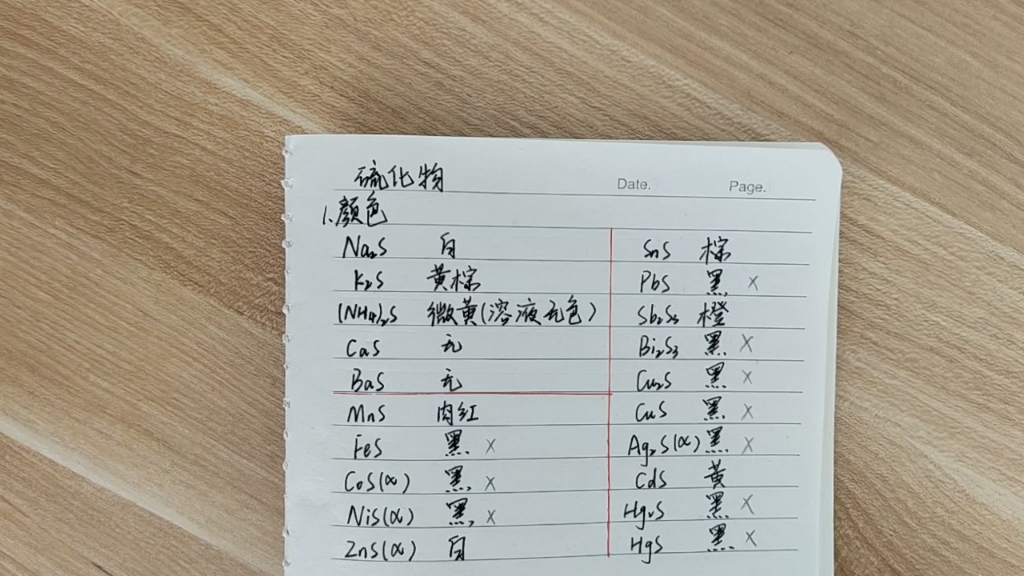 硫化物 Date. Page.
1.颜色
Na₂S 白
K₂S 黄棕
(NH₄)₂S 微黄(溶液无色)
CaS 无
BaS 无
MnS 肉红
FeS 黑 ×
CoS(α) 黑 ×
NiS(α) 黑 ×
ZnS(α) 白
SnS 棕
PbS 黑 ×
Sb₂S₃ 橙
Bi₂S₃ 黑 ×
Cu₂S 黑 ×
CuS 黑 ×
Ag₂S(α) 黑 ×
CdS 黄
Hg₂S 黑 ×
HgS 黑 ×